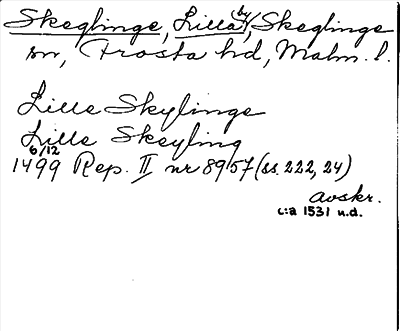 Skeglinge, Lilla, by, Skeglinge
sn, Frosta hd, Malm. l.
Lille Skylinge
Lille Skeyling
6/12
1499 Rep. II nr 8957 (ss. 222, 24)
avskr.
c:a 1531 u.d.